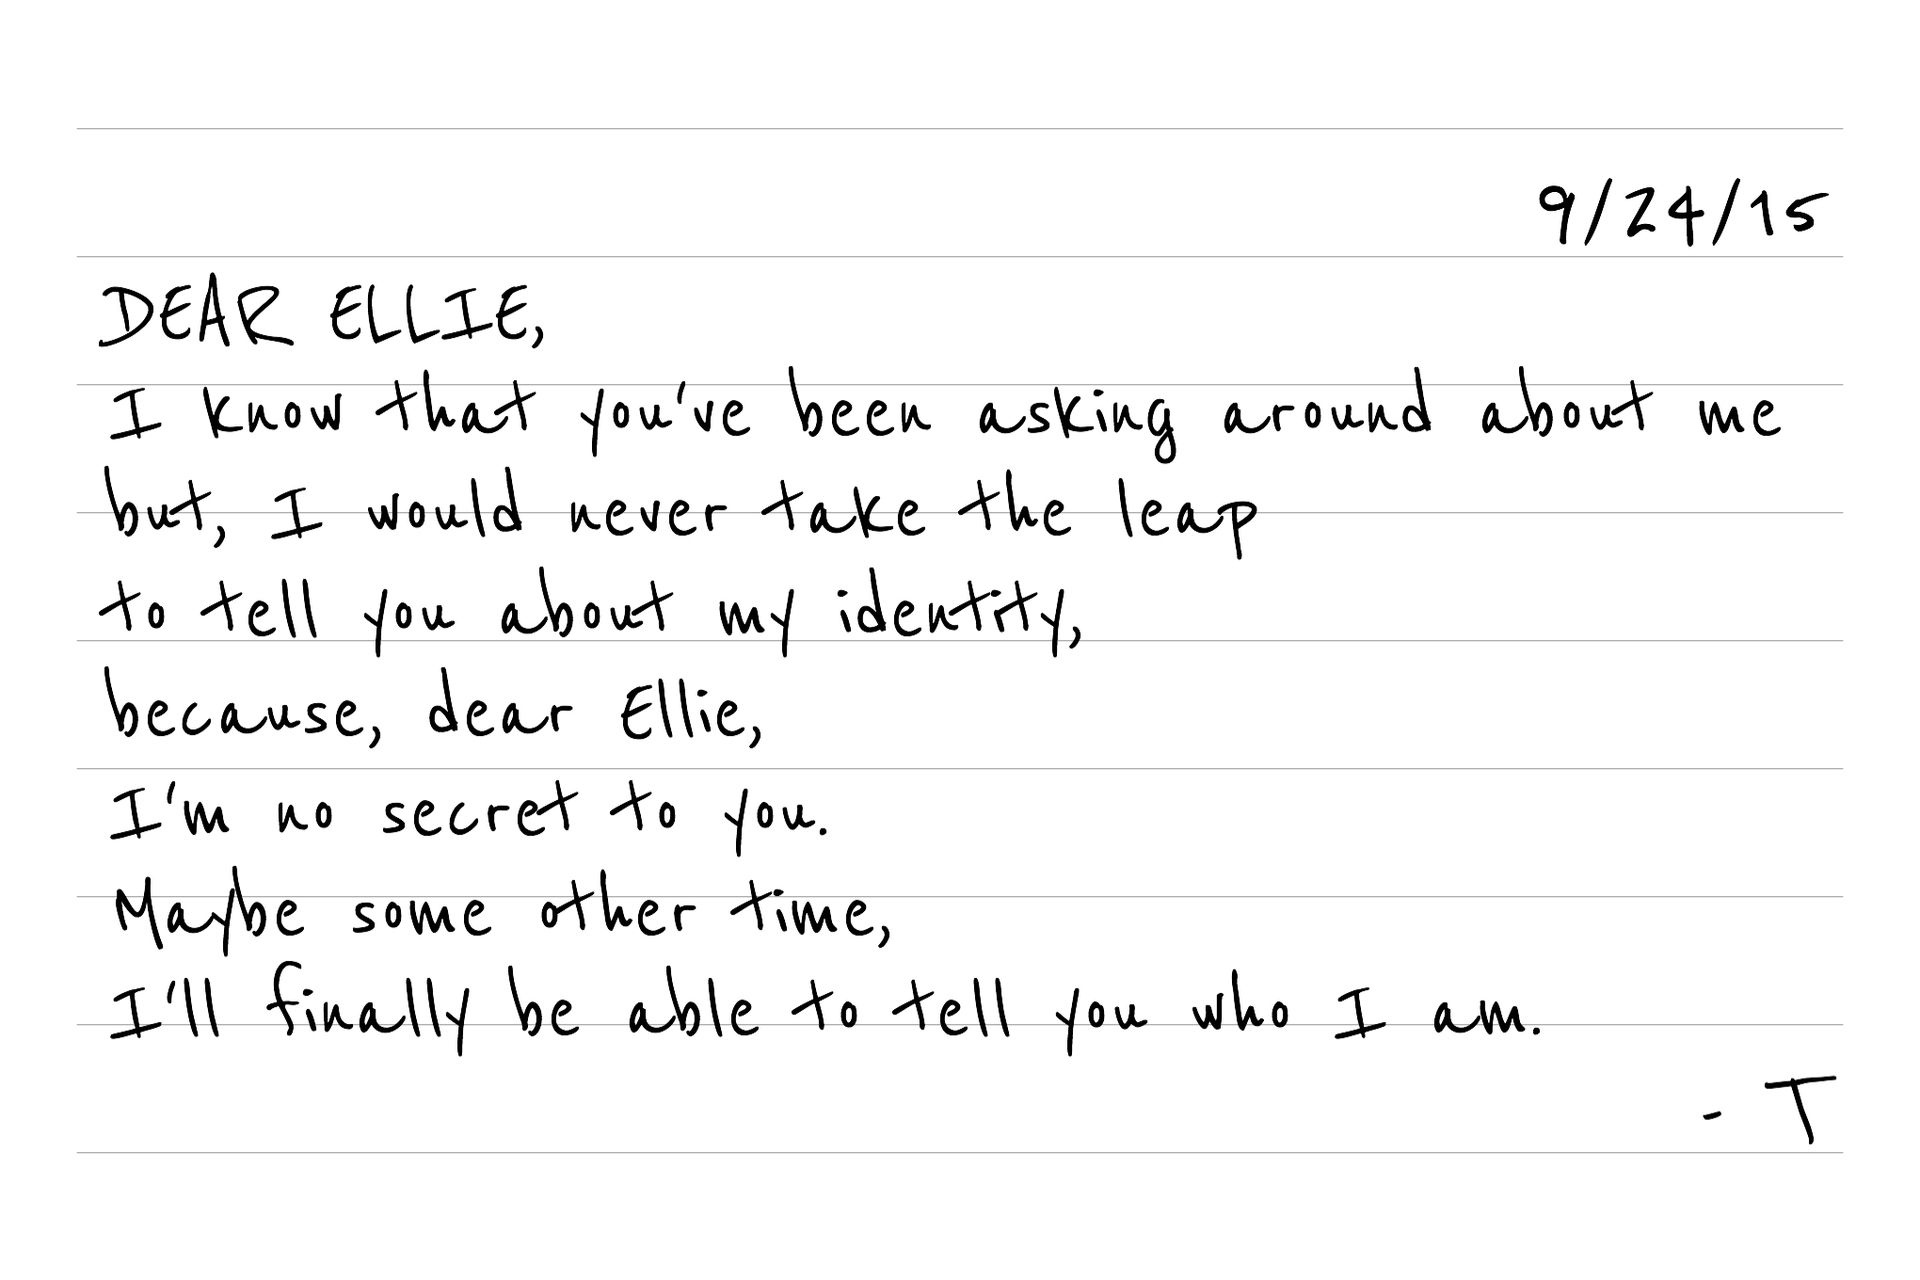 9/24/15
DEAR ELLIE,
I know that you've been asking around about me
but, I would never take the leap
to tell you about my identity,
because, dear Ellie,
I'm no secret to you.
Maybe some other time,
I'll finally be able to tell you who I am.
- T